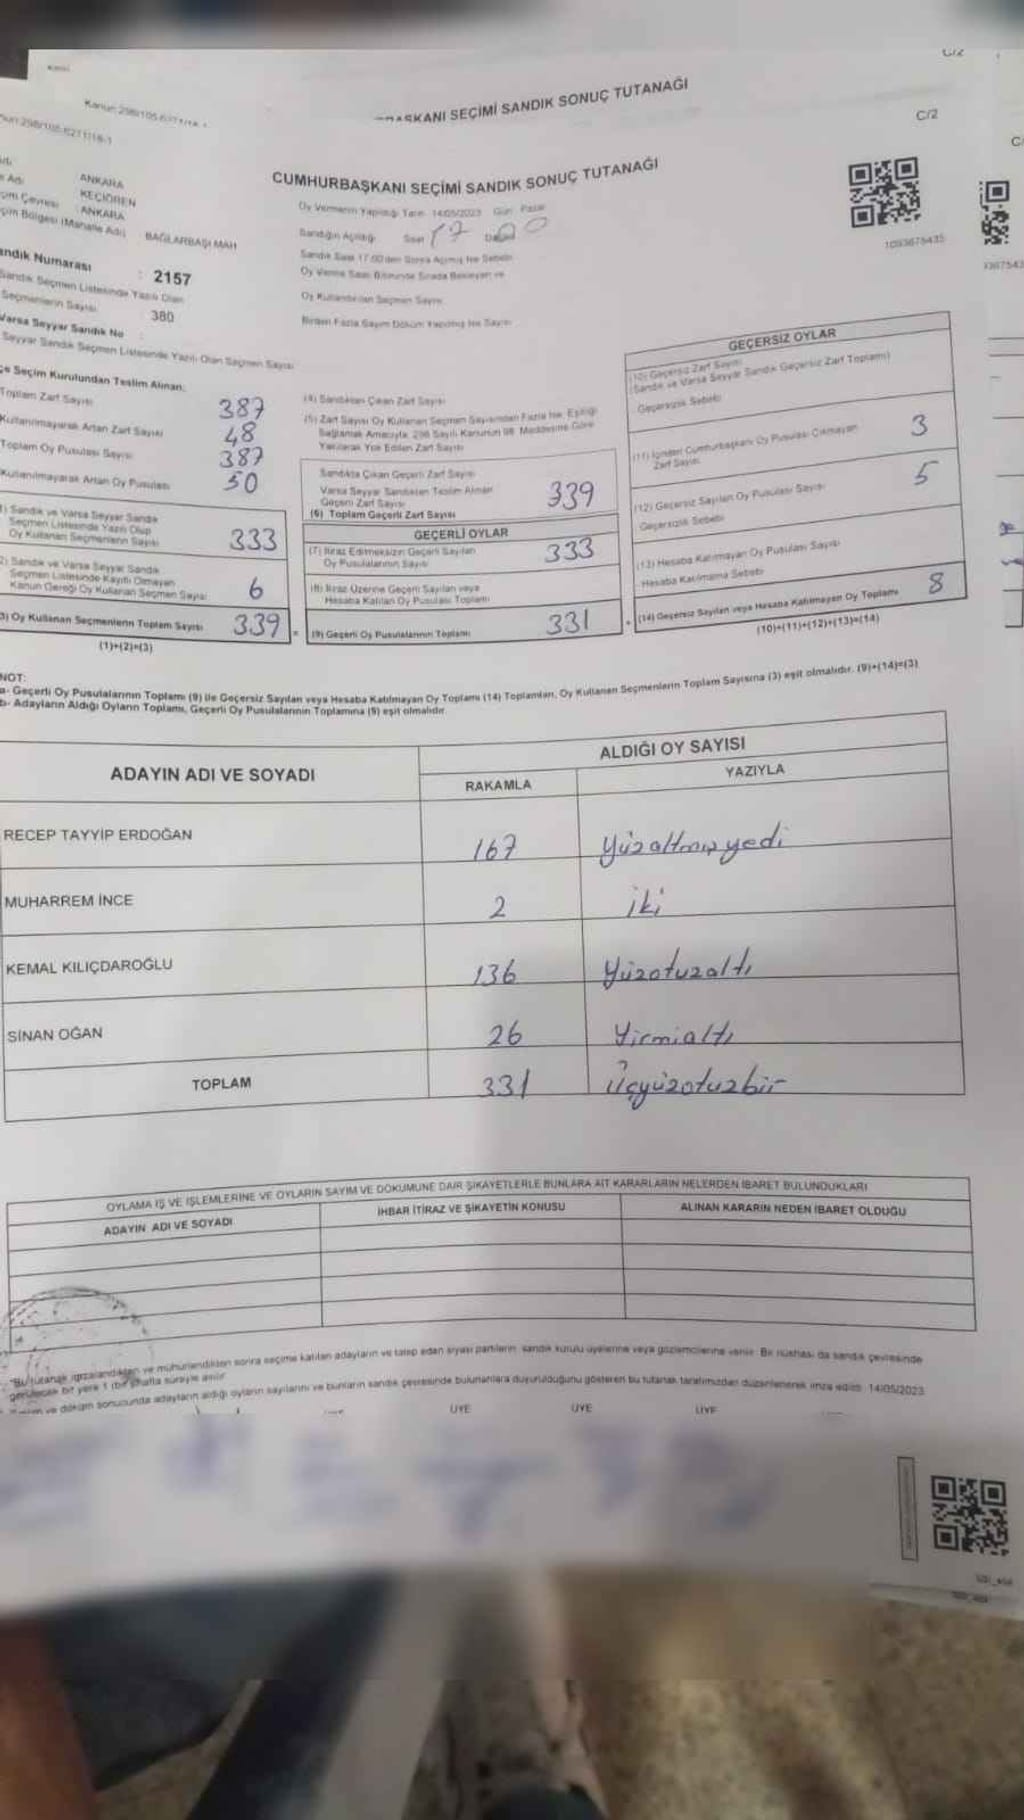 C/2
Kanun 298/105-6271/18-1
BAŞKANI SEÇİMİ SANDIK SONUÇ TUTANAĞI
C/2
CUMHURBAŞKANI SEÇİMİ SANDIK SONUÇ TUTANAĞI
ANKARA
KEÇİÖREN
ANKARA
çim Bölgesi (Mahalle Adı) BAĞLARBAŞI MAH
Oy Vermenin Yapıldığı Tarih 14/05/2023 Gün Pazar
Sandığın Açıldığı Saat 17
1093675435
andık Numarası : 2157
Sandık Seçmen Listesinde Yazılı Olan
Seçmenlerin Sayısı : 380
Varsa Seyyar Sandık No
Seyyar Sandık Seçmen Listesinde Yazılı Olan Seçmen Sayısı
Sandık Saat 17.00'den Sonra Açılmış İse Sebebi
Oy Verme Saati Bitiminde Sırada Bekleyen ve
Oy Kullandırılan Seçmen Sayısı
Birden Fazla Sayım Döküm Yapılmış İse Sayısı
çe Seçim Kurulundan Teslim Alınan:
Toplam Zarf Sayısı 387
Kullanılmayarak Artan Zarf Sayısı 48
Toplam Oy Pusulası Sayısı 387
Kullanılmayarak Artan Oy Pusulası 50
1) Sandık ve Varsa Seyyar Sandık
Seçmen Listesinde Yazılı Olup
Oy Kullanan Seçmenlerin Sayısı 333
2) Sandık ve Varsa Seyyar Sandık
Seçmen Listesinde Kayıtlı Olmayan
Kanun Gereği Oy Kullanan Seçmen Sayısı 6
3) Oy Kullanan Seçmenlerin Toplam Sayısı 339 =
(1)+(2)=(3)
(4) Sandıktan Çıkan Zarf Sayısı
(5) Zarf Sayısı Oy Kullanan Seçmen Sayısından Fazla İse, Eşitliği
Sağlamak Amacıyla, 298 Sayılı Kanunun 98. Maddesine Göre
Yakılarak Yok Edilen Zarf Sayısı
Sandıkta Çıkan Geçerli Zarf Sayısı
Varsa Seyyar Sandıktan Teslim Alınan
Geçerli Zarf Sayısı
(6) Toplam Geçerli Zarf Sayısı 339
GEÇERLİ OYLAR
(7) İtiraz Edilmeksizin Geçerli Sayılan
Oy Pusulalarının Sayısı 333
(8) İtiraz Üzerine Geçerli Sayılan veya
Hesaba Katılan Oy Pusulası Toplamı
(9) Geçerli Oy Pusulalarının Toplamı 331 +
GEÇERSİZ OYLAR
(10) Geçersiz Zarf Sayısı
(Sandık ve Varsa Seyyar Sandık Geçersiz Zarf Toplamı)
Geçersizlik Sebebi
(11) İçinden Cumhurbaşkanı Oy Pusulası Çıkmayan
Zarf Sayısı 3
(12) Geçersiz Sayılan Oy Pusulası Sayısı 5
Geçersizlik Sebebi
(13) Hesaba Katılmayan Oy Pusulası Sayısı
Hesaba Katılmama Sebebi
(14) Geçersiz Sayılan veya Hesaba Katılmayan Oy Toplamı 8
(10)+(11)+(12)+(13)=(14)
NOT:
a- Geçerli Oy Pusulalarının Toplamı (9) ile Geçersiz Sayılan veya Hesaba Katılmayan Oy Toplamı (14) Toplamları, Oy Kullanan Seçmenlerin Toplam Sayısına (3) eşit olmalıdır. (9)+(14)=(3)
b- Adayların Aldığı Oyların Toplamı, Geçerli Oy Pusulalarının Toplamına (9) eşit olmalıdır.
ADAYIN ADI VE SOYADI
ALDIĞI OY SAYISI
RAKAMLA YAZIYLA
RECEP TAYYİP ERDOĞAN 167 Yüzaltmışyedi
MUHARREM İNCE 2 iki
KEMAL KILIÇDAROĞLU 136 Yüzotuzaltı
SİNAN OĞAN 26 Yirmialtı
TOPLAM 331 Üçyüzotuzbir
OYLAMA İŞ VE İŞLEMLERİNE VE OYLARIN SAYIM VE DÖKÜMÜNE DAİR ŞİKAYETLERLE BUNLARA AİT KARARLARIN NELERDEN İBARET BULUNDUKLARI
ADAYIN ADI VE SOYADI İHBAR İTİRAZ VE ŞİKAYETİN KONUSU ALINAN KARARIN NEDEN İBARET OLDUĞU
"Bu tutanak imzalandıktan ve mühürlendikten sonra seçime katılan adayların ve talep eden siyasi partilerin sandık kurulu üyelerine veya gözlemcilerine verilir. Bir nüshası da sandık çevresinde
görülecek bir yere 1 (bir) hafta süreyle asılır
ve döküm sonucunda adayların aldığı oyların sayılarını ve bunların sandık çevresinde bulunanlara duyurulduğunu gösteren bu tutanak tarafımızdan düzenlenerek imza edildi. 14/05/2023
ÜYE ÜYE ÜYE